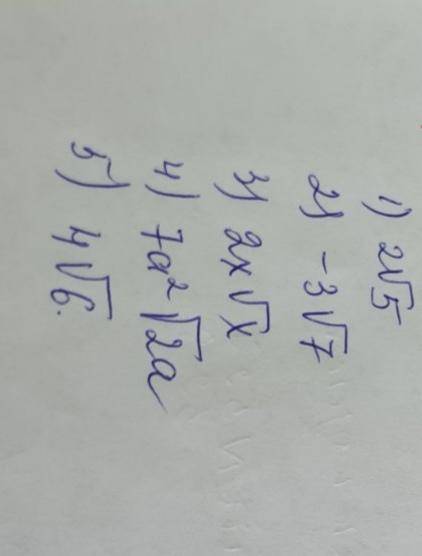 1) 2√5
2) -3√7
3) 2x√x
4) 7a²√2a
5) 4√6.